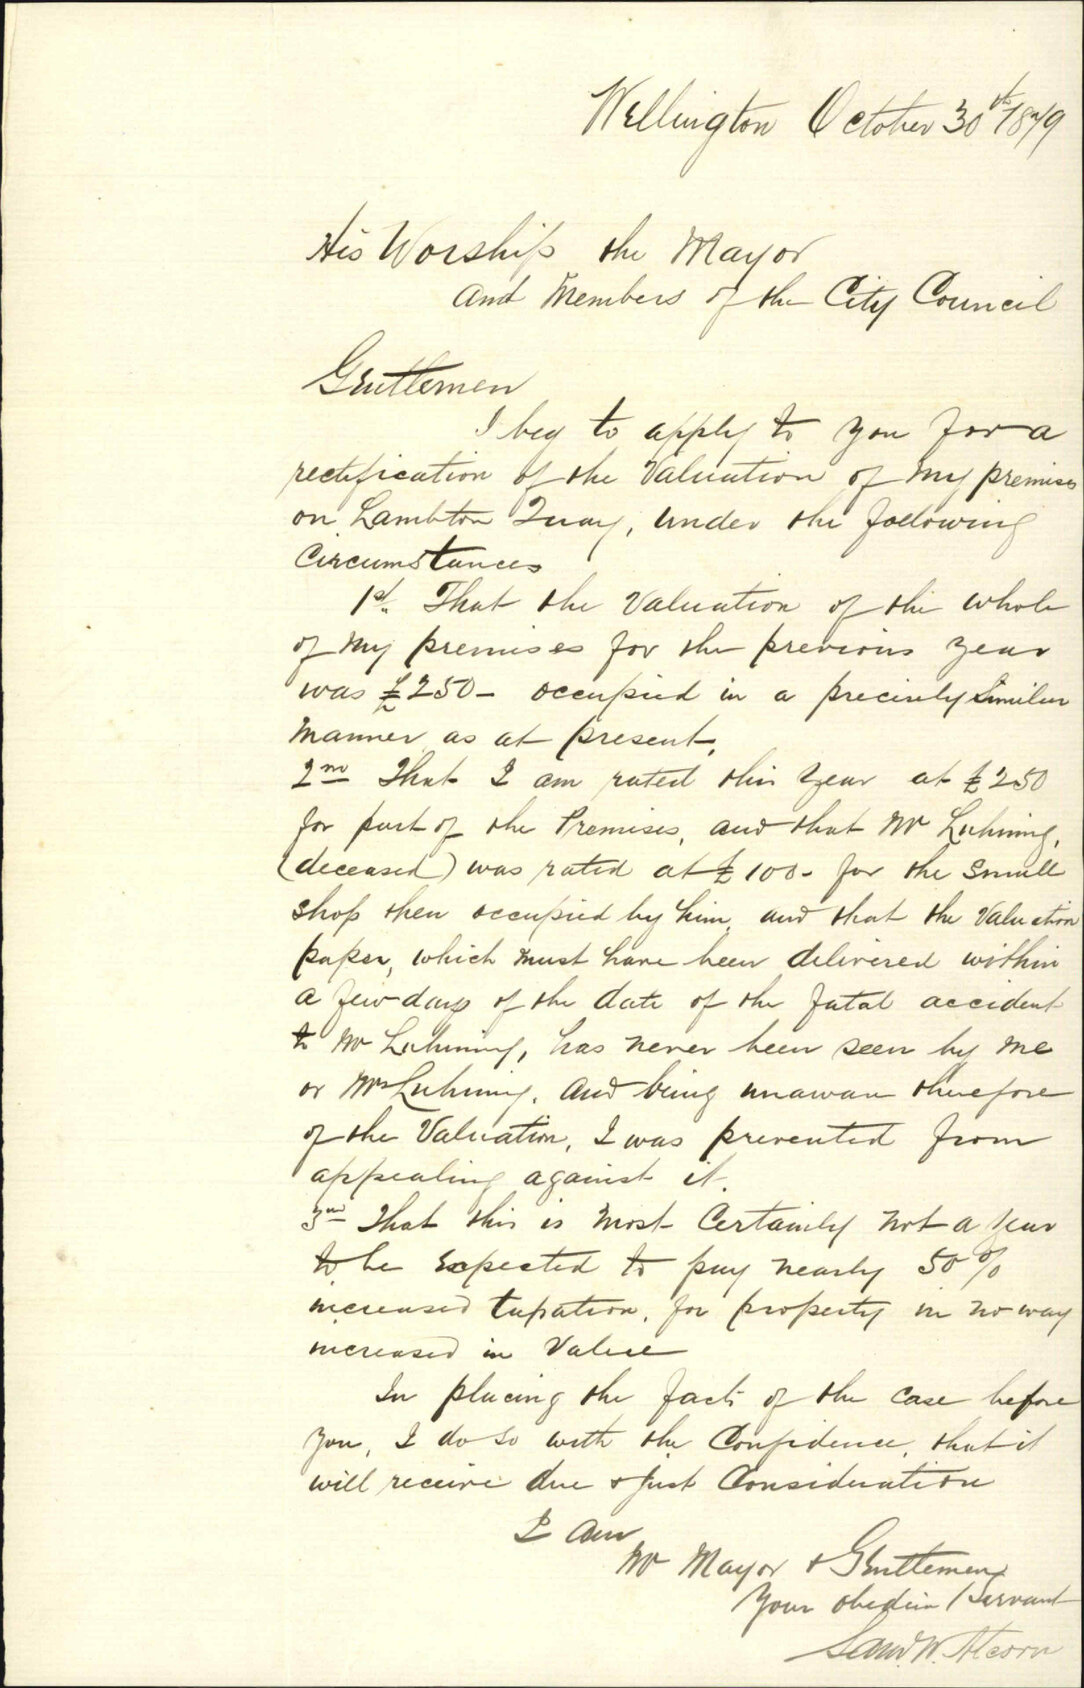 Wellington October 30th 1879
His Worship the Mayor
and Members of the City Council
Gentlemen
I beg to apply to you for a
rectification of the Valuation of my premises
on Lambton Quay, under the following
Circumstances
1st. That the Valuation of the whole
of my premises for the previous year
was £250 - occupied in a precisely similar
manner as at present.
2nd That I am rated this year at £250
for part of the Premises, and that Mr Luhning,
(deceased) was rated at £100 - for the small
shop then occupied by him, and that the Valuation
paper, which must have been delivered within
a few days of the date of the fatal accident
to Mr Luhning, has never been seen by me
or Mrs Luhning. And being unaware therefore
of the Valuation, I was prevented from
appealing against it.
3rd That this is most Certainly not a year
to be expected to pay nearly 50%
increased taxation, for property in no way
increased in Value
In placing the facts of the case before
you, I do so with the Confidence, that it
will receive due & just Consideration
I am
Mr Mayor & Gentlemen
Your obedient Servant
Saml. W. Alcorn